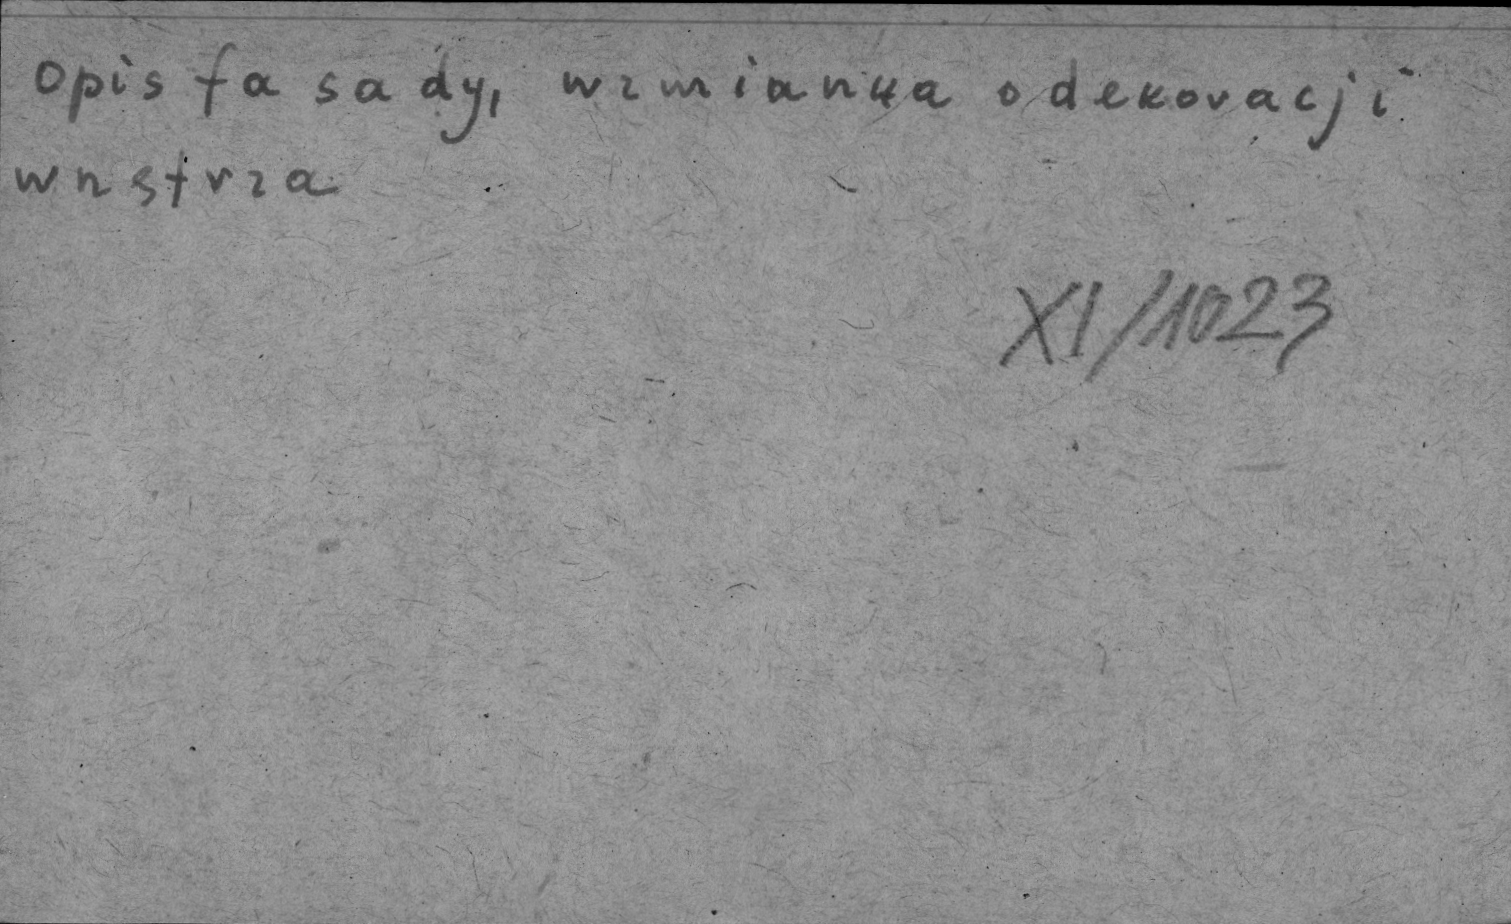 Opis fasady, wzmianka o dekoracji
wnstrza
XI/1023